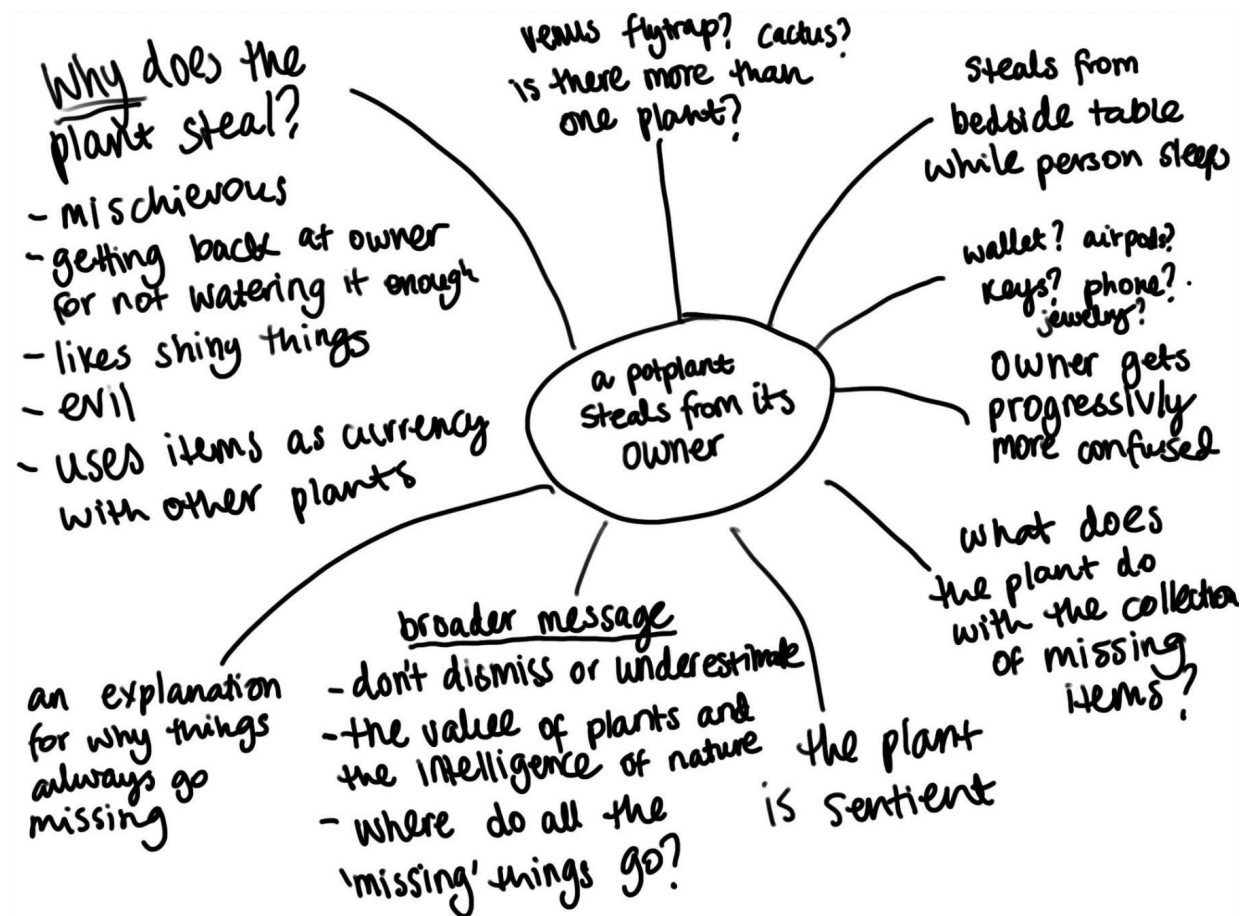 a potplant
steals from its
owner
Why does the
plant steal?
- mischievous
- getting back at owner
for not watering it enough
- likes shiny things
- evil
- uses items as currency
with other plants
venus flytrap? cactus?
is there more than
one plant?
steals from
bedside table
while person sleeps
wallet? airpods?
keys? phone?
jewelry?
owner gets
progressivly
more confused
what does
the plant do
with the collection
of missing
items?
the plant
is sentient
broader message
- don't dismiss or underestimate
- the value of plants and
the intelligence of nature
- where do all the
'missing' things go?
an explanation
for why things
always go
missing